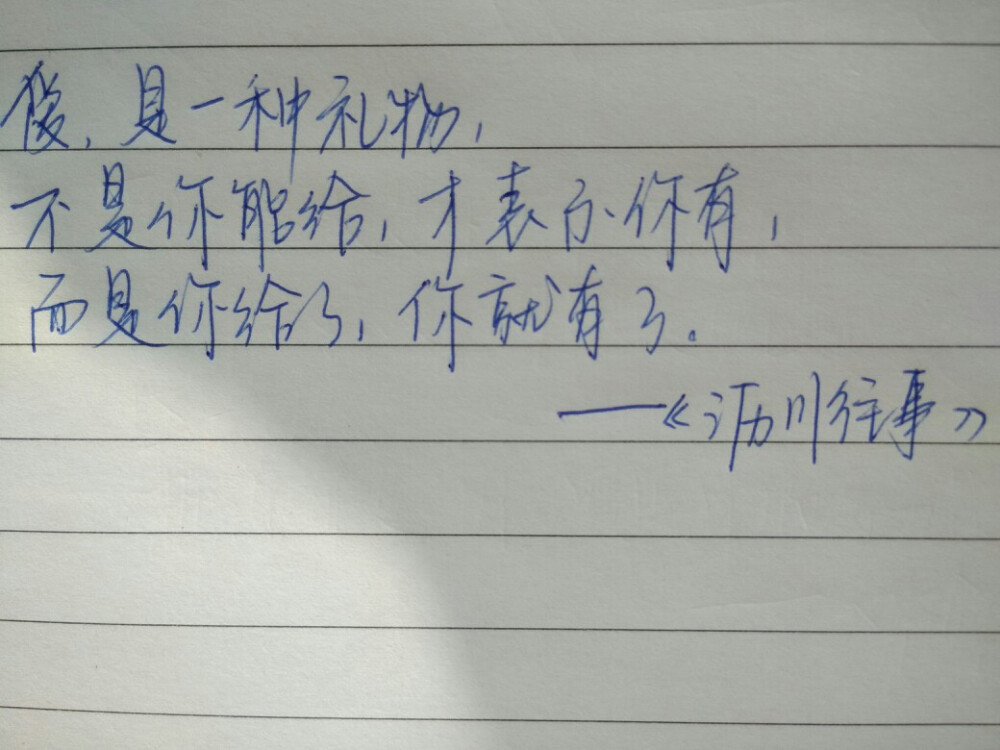 爱,是一种礼物,
不是你能给,才表示你有,
而是你给了,你就有了。
——《沥川往事》